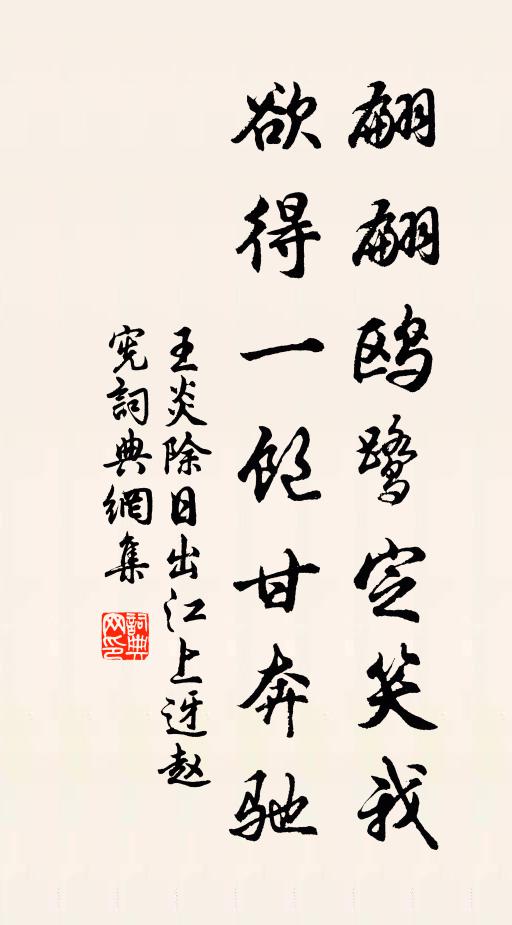 翩翩鸥鹭定笑我
欲得一饱甘奔驰
王炎除日出江上迓赵
宪詞典網集
詞典网印